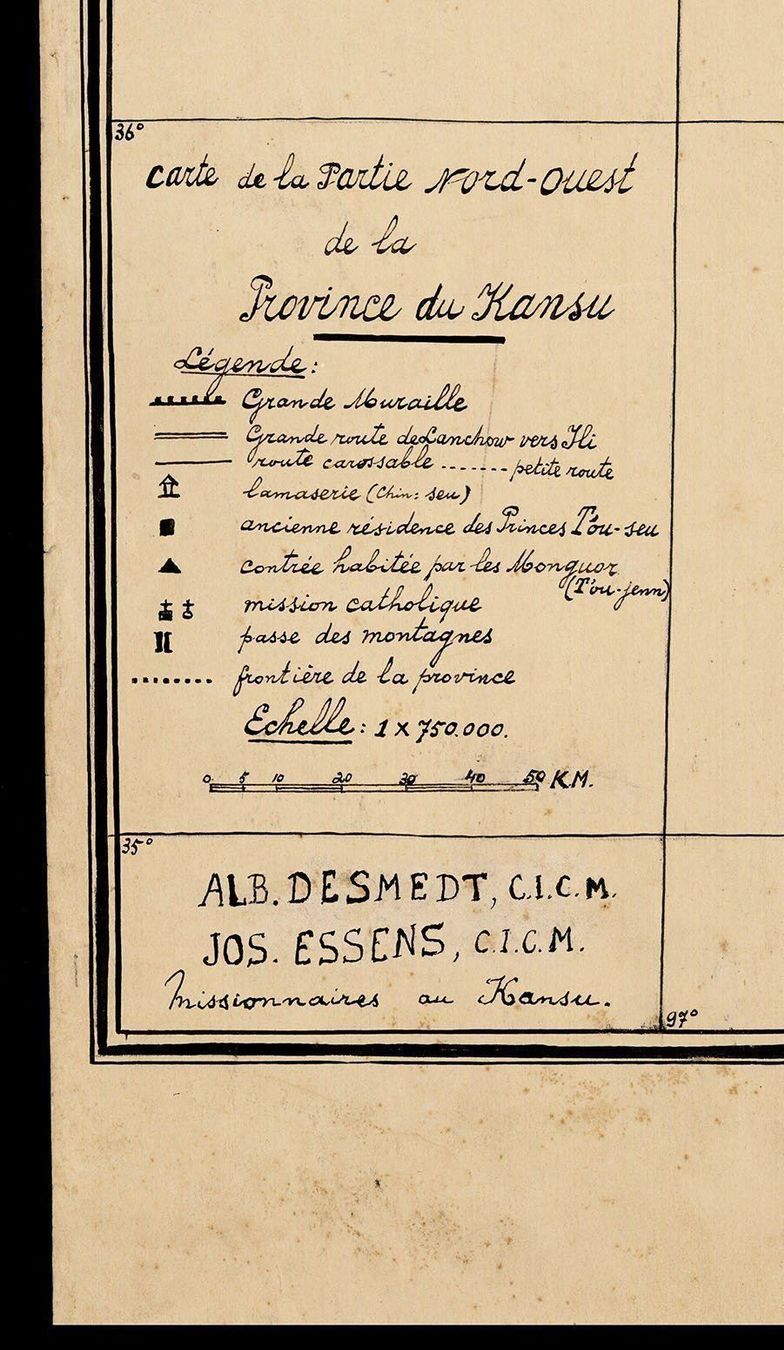 36°
Carte de la Partie Nord-Ouest
de la
Province du Kansu
Légende:
Grande Muraille
Grande route de Lanchow vers Ili
route carossable ....... petite route
lamaserie (Chin: seu)
ancienne résidence des Princes T'ou-seu
contrée habitée par les Monguor
(T'ou-jenn)
mission catholique
passe des montagnes
frontière de la province
Echelle: 1 x 750.000.
0 5 10 20 30 40 50 K.M.
35°
ALB. DESMEDT, C.I.C.M.
JOS. ESSENS, C.I.C.M.
Missionnaires au Kansu.
97°